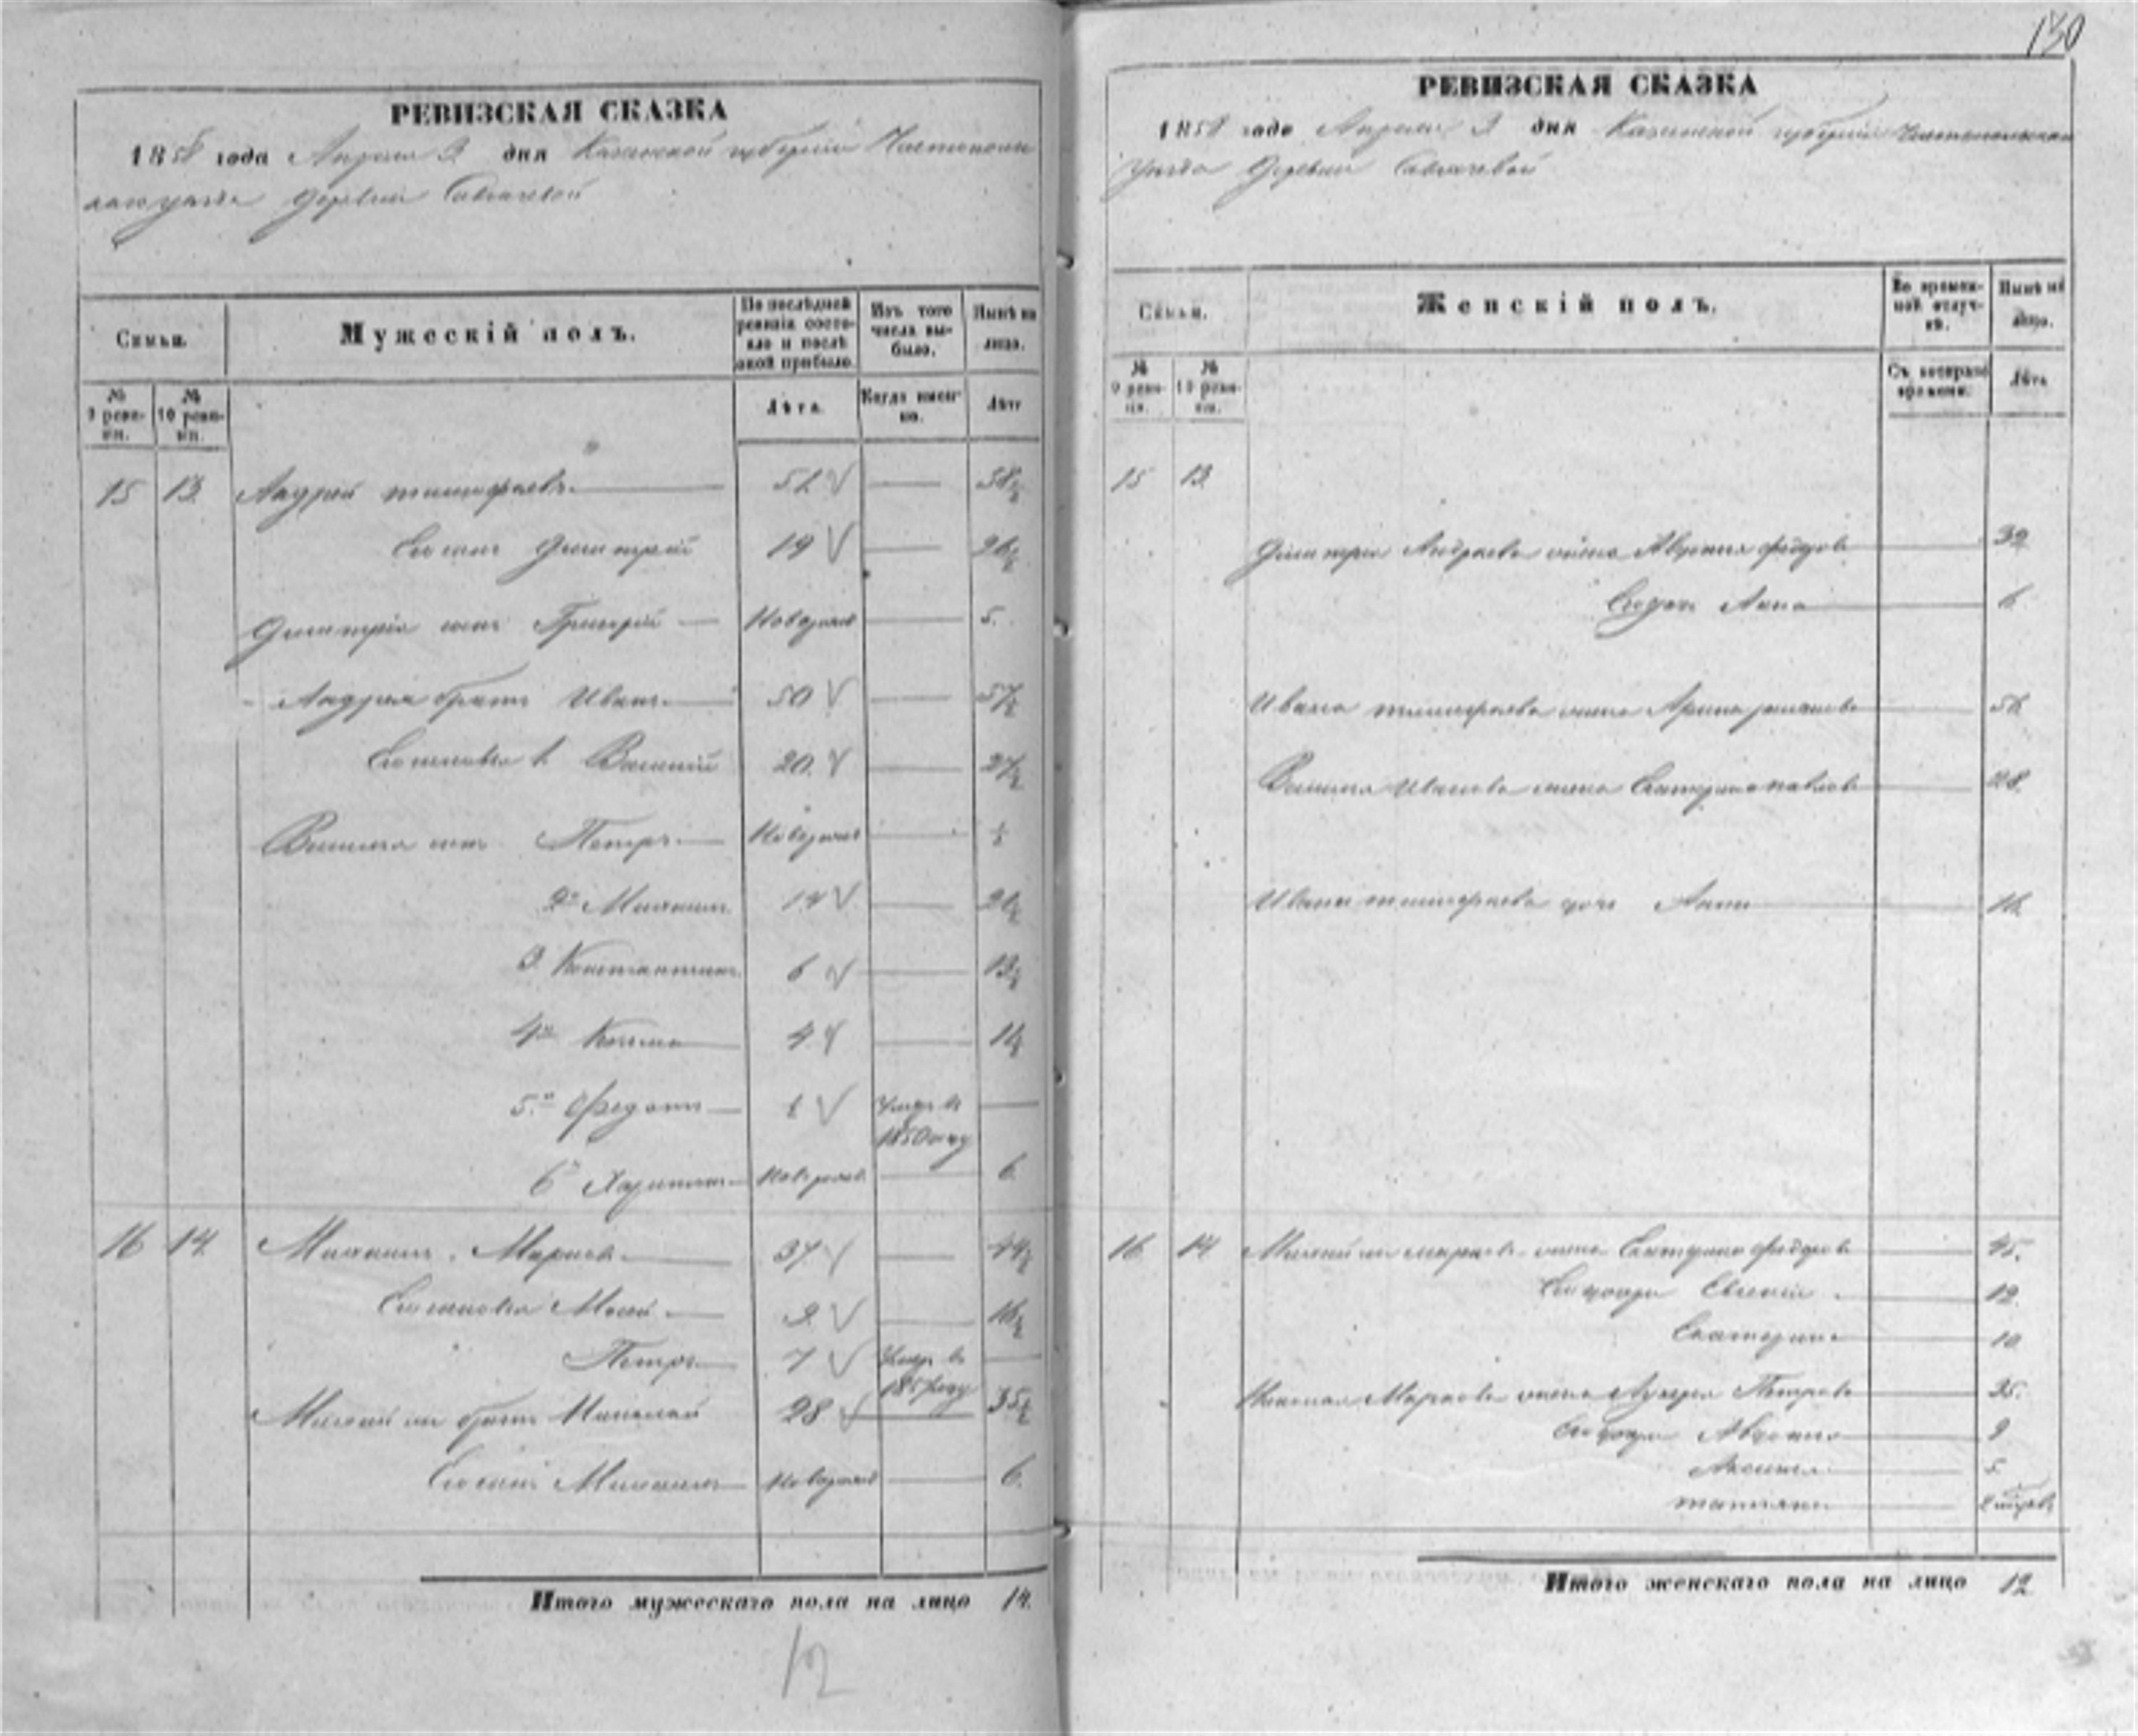 130
РЕВИЗСКАЯ СКАЗКА
1858 года Апреля 3 дня Казанской губернии Чистополь
скаго уезда деревни Савачевой
Семьи.
Мужескій полъ.
По послѣдней ревизіи состояло и послѣ оной прибыло.
Изъ того числа выбыло.
Нынѣ на лицо.
№ 9 ревизіи.
№ 10 ревизіи.
Лѣта.
Когда именно.
Лѣта
15 13 Андрей тимофеевъ 51 58½
Сынъ Дмитрей 19 26½
Дмитрія сынъ Григорій Новорож 5.
Андрея братъ Иванъ 50 57½
Сыновья 1 Василій 20. 27½
Василья сынъ Петръ Новорож ½
2й Михаилъ 14 21½
3. Константинъ 6 13½
4й Козма 4 11½
5й Федотъ 1 Умеръ въ
1850 году
6й Харитонъ Новорож 6
16 14 Михаилъ Марковъ 37 44½
Сыновья Мосей 9 16½
Петръ 7 Умер въ
185 году
братъ Николай 28 35½
Сынъ Михаилъ Новорож 6.
Итого мужескаго пола на лицо 14.
12
РЕВИЗСКАЯ СКАЗКА
1858 года Апреля 3 дня Казанской губернии Чистопольскаго
уезда деревни Савачевой
Семьи.
Женскій полъ.
Во временной отлучкѣ.
Нынѣ на лицо.
№ 9 ревизіи.
№ 10 ревизіи.
Съ котораго времени.
Лѣта
15 13
Дмитрия Андреева жена Авдотья федоров 32
Его дочь Анна 6
Ивана тимофеева жена Арина 56
Василья Иванова жена Екатерина павлова 28.
Ивана тимофеева дочь Анна 16
16 14 маркова жена Екатерина федоров 45.
Его дочери Евгения 12.
Екатерина 10
Николая Маркова жена Лукерья Петрова 35.
Его дочери Авдотья 9
Аксинья 5
татьяна
Итого женскаго пола на лицо 12